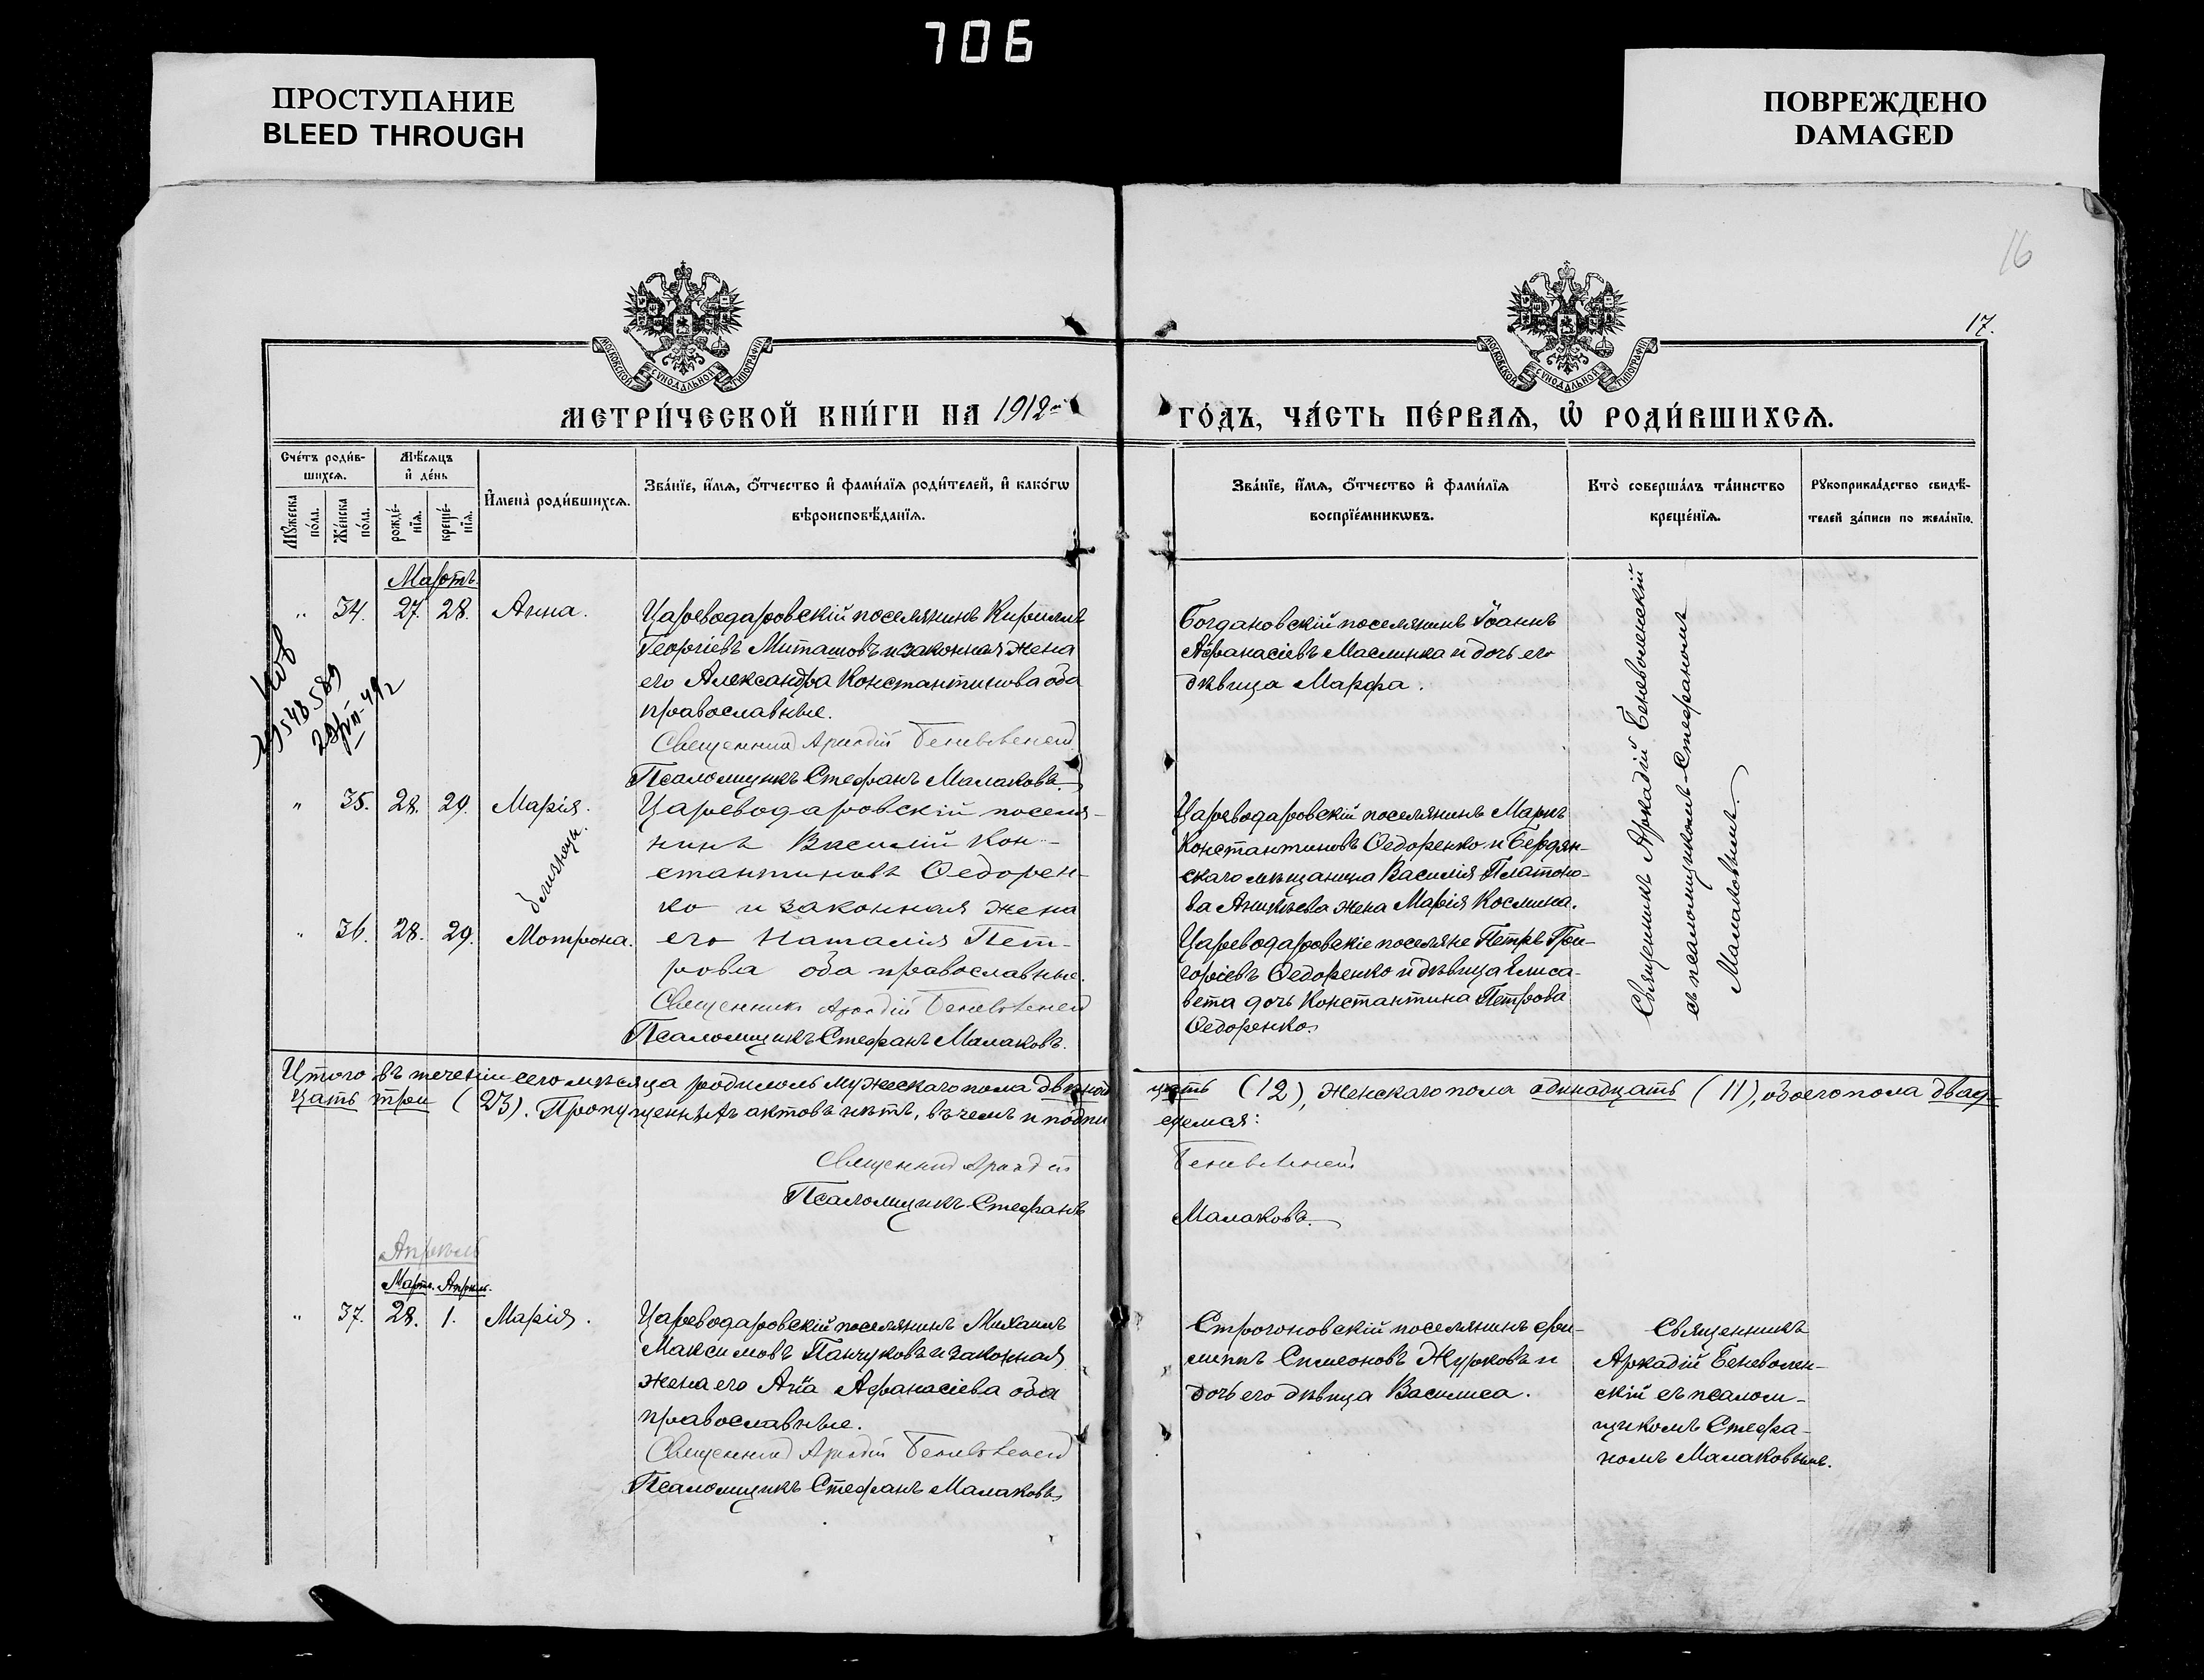 706
ПРОСТУПАНИЕ
BLEED THROUGH
ПОВРЕЖДЕНО
DAMAGED
16
17.
МОСКОВСКОЙ СѴНОДАЛЬНОЙ ТИПОГРАФІИ
МОСКОВСКОЙ СѴНОДАЛЬНОЙ ТИПОГРАФІИ
МЕТРИ́ЧЕСКОЙ КНИ́ГИ НА 1912й
ГО́ДЪ, ЧА́СТЬ ПЕ́РВАѦ, Ѡ҆ РОДИ́ВШИХСѦ.
Сче́тъ роди́в-
шихсѧ.
Мꙋ́жеска по́ла.
Же́нска по́ла.
Мѣ́сѧцъ
и҆ де́нь
рожде́-
нїѧ.
креще́-
нїѧ.
И҆мена̀ роди́вшихсѧ.
Зва́нїе, и҆́мѧ, ѻ҆́тчество и҆ фами́лїѧ роди́телей, и҆ како́гѡ
вѣроисповѣ́данїѧ.
Зва́нїе, и҆́мѧ, ѻ҆́тчество и҆ фами́лїѧ
воспрїе́мникѡвъ.
Кто̀ соверша́лъ та́инство
креще́нїѧ.
Рꙋкоприкла́дство свидѣ́-
телей за́писи по жела́нїю.
Мартъ.
„ 34. 27. 28. Анна.
Цареводаровскій поселянинъ Кириллъ
Георгіевъ Миташовъ и законная жена
его Александра Константинова оба
православные.
Священникъ Аркадій Беневоленскій
Псаломщикъ Стефанъ Малаковъ.
Богдановскій поселянинъ Іоаннъ
Афанасіевъ Маслинка и дочь его
дѣвица Марфа.
Священникъ Аркадій Беневоленскій
съ псаломщикомъ Стефаномъ
Малаковымъ.
„ 35. 28. 29. Марія.
близнецы.
„ 36. 28. 29. Мотрона.
Цареводаровскій поселя-
нинъ Василій Кон-
стантиновъ Ѳедорен-
ко и законная жена
его Наталія Пет-
рова оба православные.
Священникъ Аркадій Беневоленскій
Псаломщикъ Стефанъ Малаковъ.
Цареводаровскій поселянинъ Маркъ
Константиновъ Ѳедоренко и Бердян-
скаго мѣщанина Василія Платоно-
ва жена Марія Космина.
Цареводаровскіе поселяне Петръ Гри-
горіевъ Ѳедоренко и дѣвица Елиса-
вета дочь Константина Петрова
Ѳедоренко.
Итого въ теченіи сего мѣсяца родилось мужескаго пола двѣнад
цать (12), женскаго пола одиннадцать (11), обоего пола двад-
цать три (23). Пропущенныхъ актовъ нѣтъ, въ чемъ и подпи
суемся:
Священникъ Аркадій
Беневоленскій
Псаломщикъ Стефанъ
Малаковъ.
Апрѣль
Мартъ. Апрѣль.
„ 37. 28. 1. Марія.
Цареводаровскій поселянинъ Михаилъ
Максимовъ Панчуковъ и законная
жена его Анна Афанасіева оба
православные.
Священникъ Аркадій Беневоленскій
Псаломщикъ Стефанъ Малаковъ
Строгоновскій поселянинъ Фи-
липпъ Симеоновъ Журковъ и
дочь его дѣвица Василиса.
Священникъ
Аркадій Беневолен-
скій съ псалом-
щикомъ Стефа-
номъ Малаковымъ.